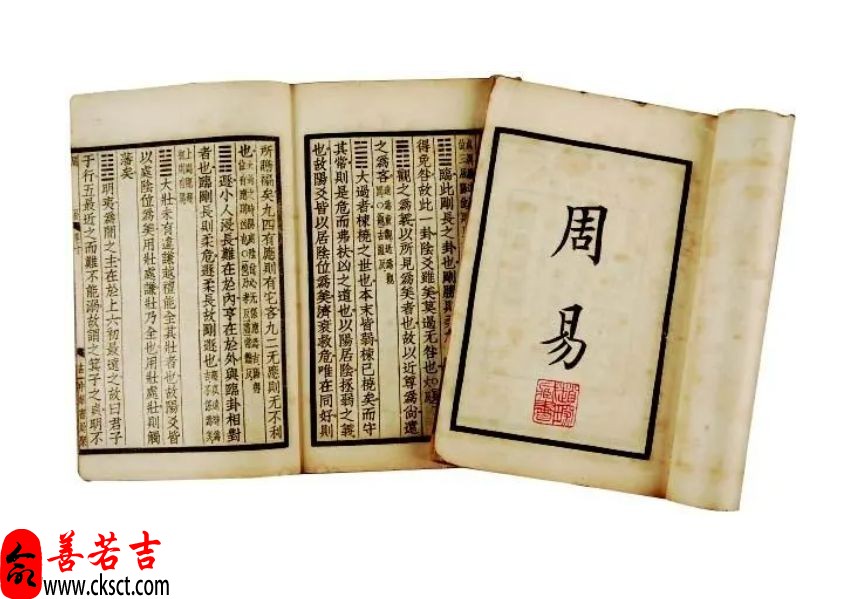 周易
䷒臨此剛長之卦也剛勝則柔
得免咎故此一卦陰爻雖美莫過无咎也
䷓觀之爲義以所見爲美者也故以近尊爲尚遠
之爲吝
䷛大過者棟橈之世也本末皆弱棟已橈矣而守
其常則是危而弗扶凶之道也以陽居陰拯弱之義
也故陽爻皆以居陰位爲美濟衰救危唯在同好則
所贍褊矣九四有應則有它吝九二无應則无不利
也
䷠遯小人浸長難在於內亨在於外與臨卦相對
者也臨剛長則柔危遯柔長故剛遯也
䷡大壯未有違謙越禮能全其壯者也故陽爻皆
以處陰位爲美用壯處謙壯乃全也用壯處壯則觸
藩矣
䷣明夷爲闇之主在於上六初最遠之故曰君子
于行五最近之而難不能溺故謂之箕子之貞明不
善若吉
www.cksct.com